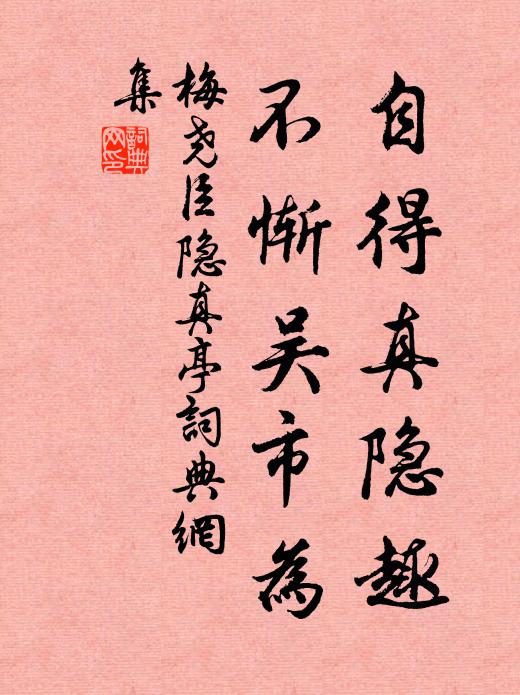 自得真隐趣
不惭吴市为
梅尧臣隐真亭詞典網
集
詞典网印